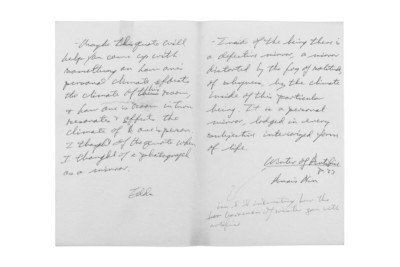 - Maybe this quote will
help you come up with
something on how one's
personal climate affects
the climate of this room,
+ how one's room in turn
+ affects the
climate of one's person.
I thought of the quote when
I thought of a photograph
as a mirror.
Edda
- Inside of the being there is
a defective mirror, a mirror
distorted by the fog of solitude,
of by the climate
inside of this particular
being. It is a personal
mirror, lodged in every
subjective interiorized form
of life.
Winter of Artifice
Anais Nin
isn't it interesting how the
of winter you with
artifice